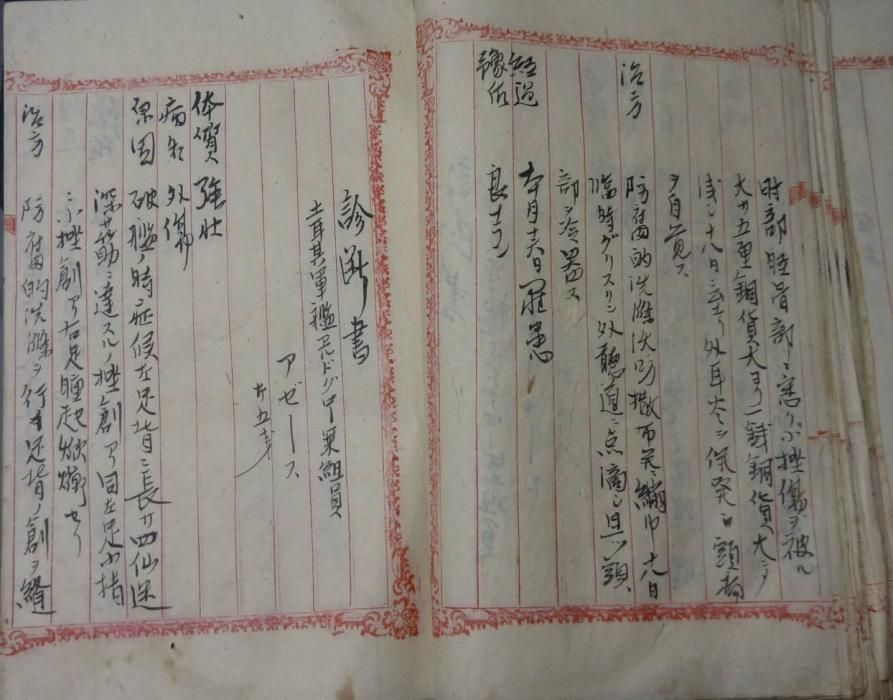 肘部脛骨部ニ憑リ小挫傷ヲ被ル
大サ五厘銅貨大ヨリ一銭銅貨大ニシテ
浅シ十八日ニ至リ外耳炎ヲ併発シ頭痛
ヲ自覚ス
治方 防腐的洗滌沃防撒布シテ繃巾十八日
臨時グリスリン外聴道ニ点滴シ且ツ頭
部ヲ冷罨ス
経過 本月十六日罹患
豫後 良ナラン
診断書
土耳其軍艦エルトグロール乗組員
アゼース
廿五才
体質 強壮
病名 外傷
原因 破艦ノ時 症候左足背ニ長サ四仙迷
深サ筋ニ達スルノ挫創アリ同左足小指
ニ小挫創アリ右足腫起焮衝セリ
治方 防腐的洗滌ヲ行ヒ足背ノ創ヲ縫